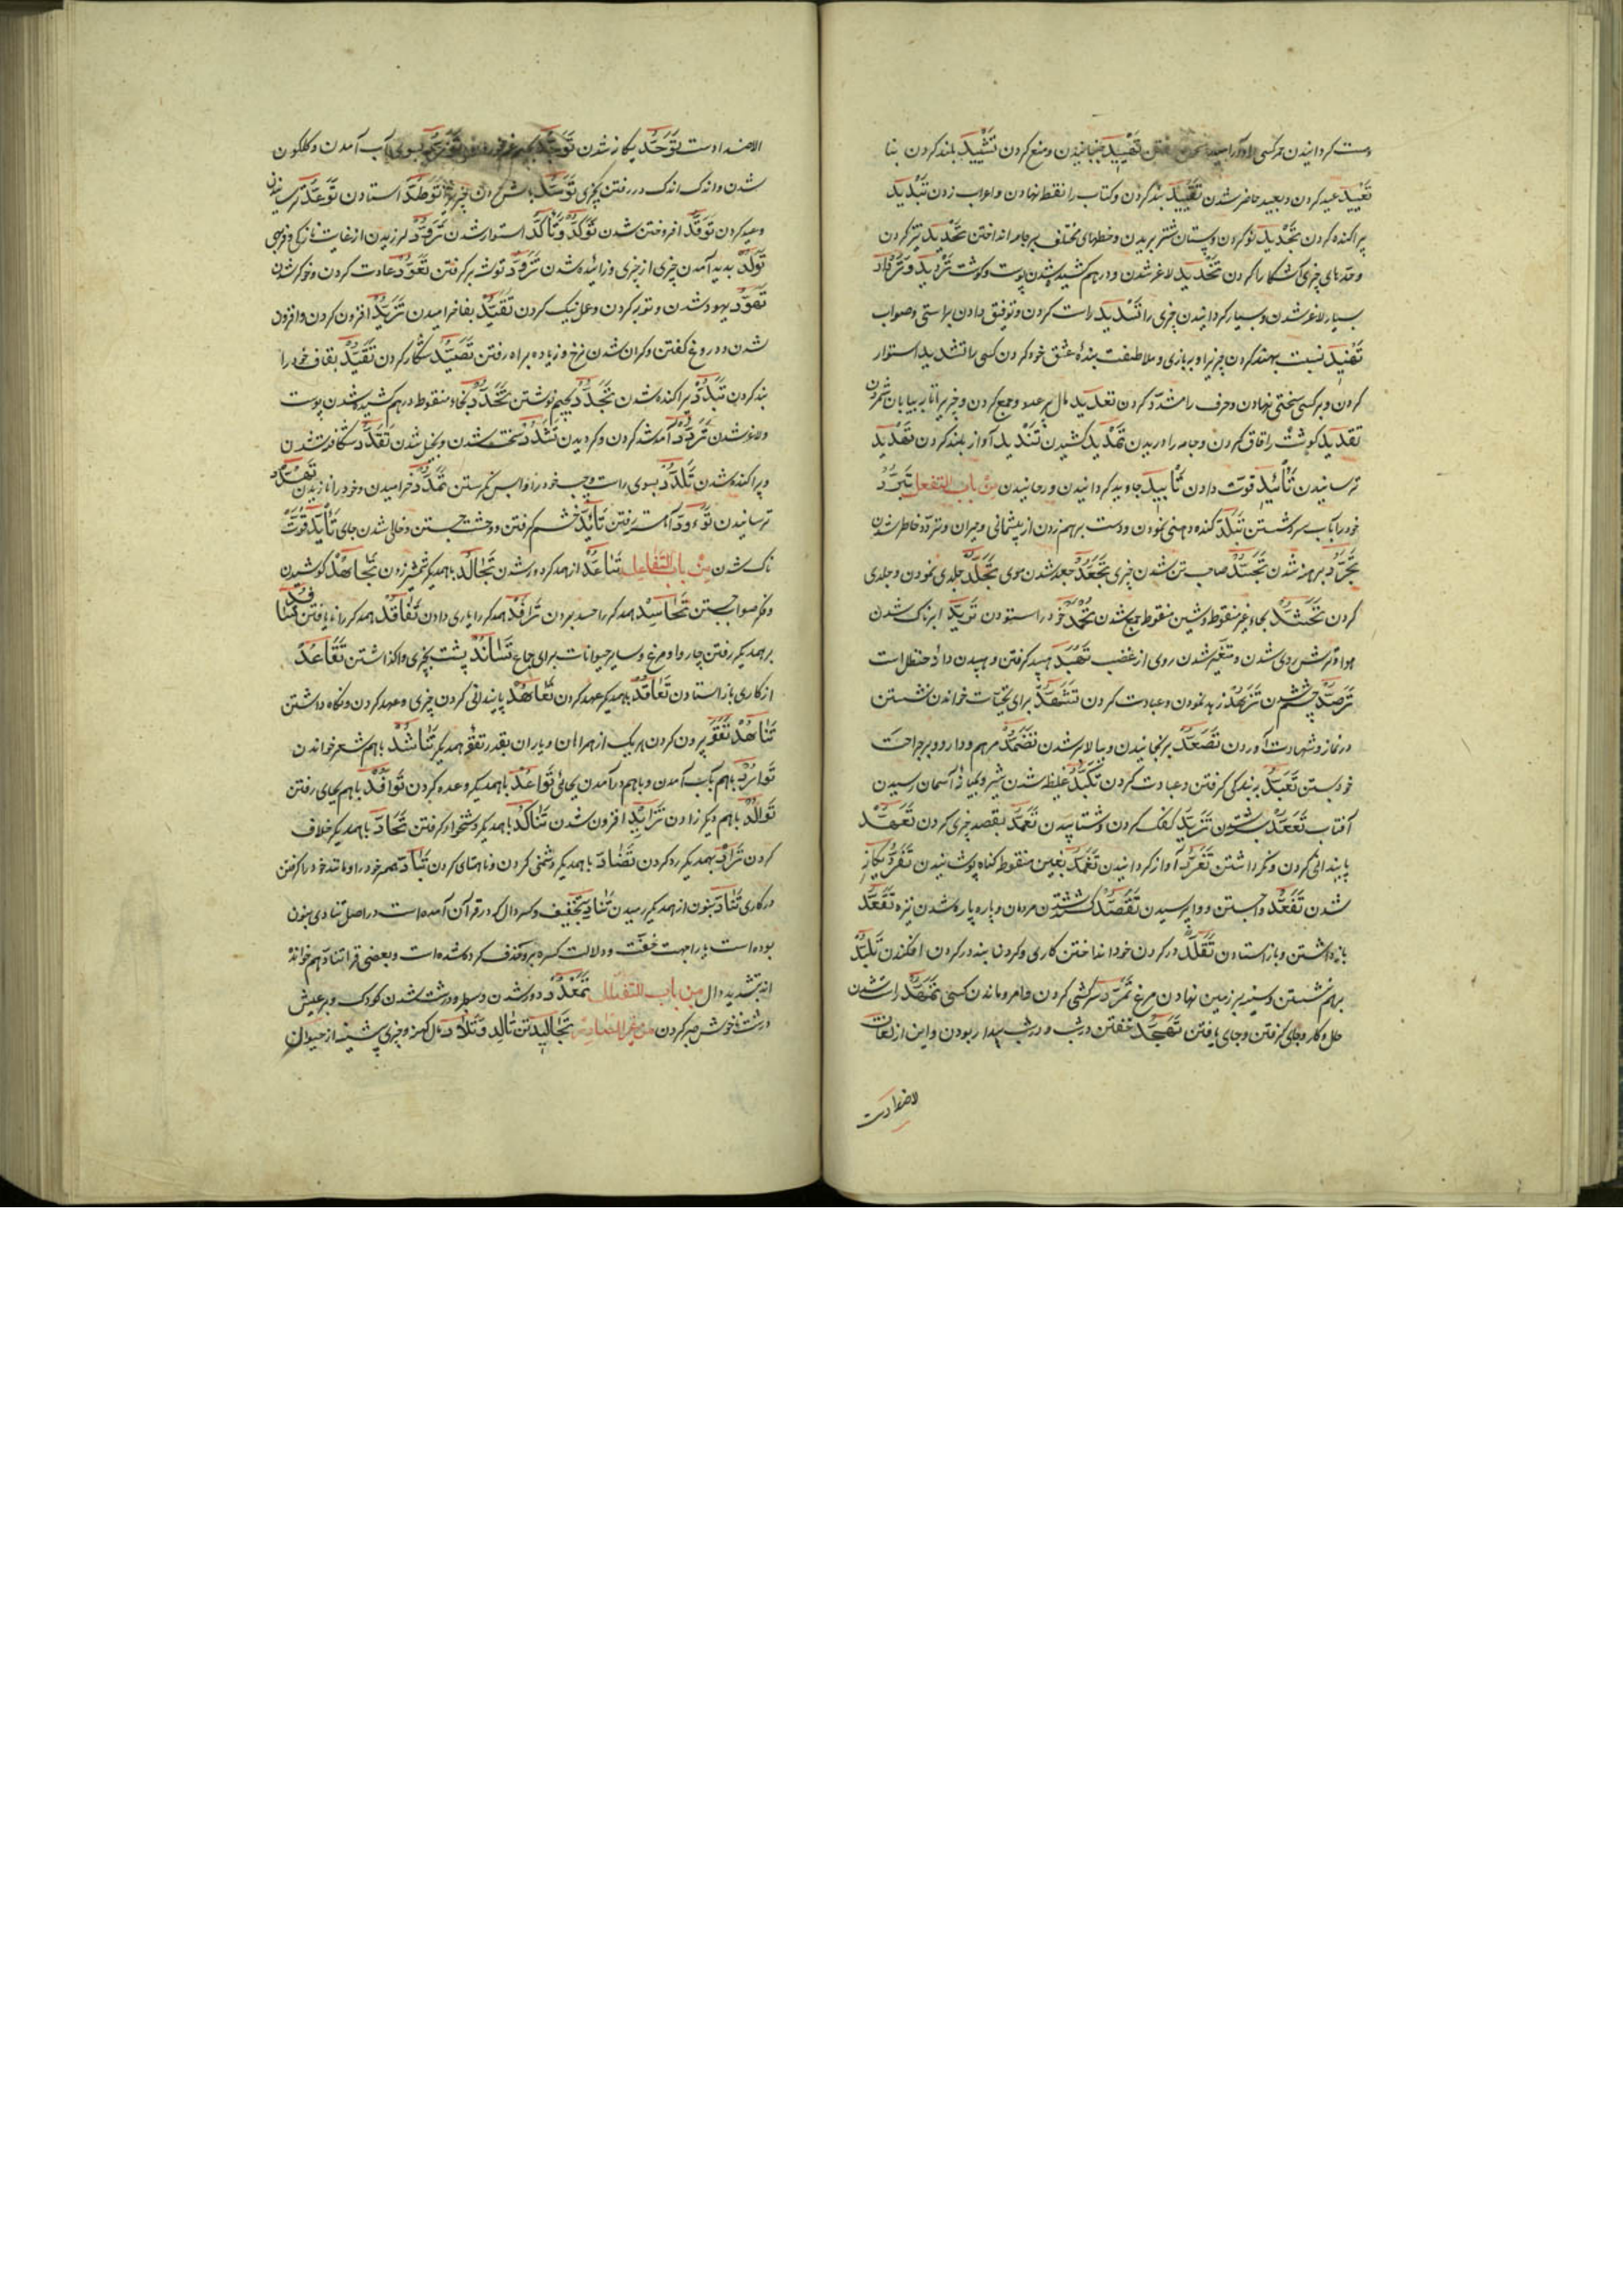 تَشْیِید بلند کردن بنا
تَعْیِید عید کردن و بعید حاضر شدن تَقْیِید بند کردن و کتاب را نقطه نهادن و اعراب زدن تَبْدِید
پراکنده کردن تَجْدِید نو کردن و پستان شتر بریدن و خطهای مختلف بر جامه انداختن تَحْدِید تیز کردن
و حدهای چیزی آشکارا کردن تَخْدِید لاغر شدن و در هم کشیده شدن پوست و گوشت تَرْدِید و تَرْداد
بسیار لاغر شدن و بسیار گردانیدن چیزی را تَسْدِید راست کردن و توفیق دادن براستی و صواب
کردن و بر کسی سختی نهادن و حرف را مشدد کردن تعدید مال بر عدد و جمع کردن
تقدید گوشت را قاق کردن و جامه را دریدن تَمْدِید کشیدن تَنْدِید آواز بلند کردن تَهْدِید
ترسانیدن تَأیید قوت دادن تَأبِید جاوید گردانیدن و رمانیدن من باب التفعل تَبَرُّد
خود را بآب سرد شستن تَبَلُّد کنده ذهنی نمودن و دست بر هم زدن از پشیمانی و حیران و متردد خاطر شدن
تَجَرُّد برهنه شدن تَجَسُّد صاحب تن شدن چیزی تَجَعُّد جعد شدن موی تَجَلُّد جلدی نمودن و جلدی
کردن تَحَشُّد بحاء غیر منقوط و شین منقوط جمع شدن تَحَمُّد خود را ستودن تَرَبُّد ابرناک شدن
هوا و ترش روی شدن و متغیر شدن روی از غضب تَهَبُّد هبید گرفتن و هبیدن دانه حنظل است
تَرَصُّد چشم داشتن تَزَهُّد زهد نمودن و عبادت کردن تَشَهُّد برای تحیات خواندن نشستن
در نماز و شهادت آوردن تَصَعُّد برنجانیدن و ببالا بر شدن تَضَمُّد مرهم و دارو بر جراحت
خود بستن تَعَبُّد ببندگی گرفتن و عبادت کردن تَکَبُّد غلیظ شدن شیر و بمیانه آسمان رسیدن
آفتاب تَزَبُّد کفک کردن و شتابیدن تَعَمُّد بقصد چیزی کردن تَعَهُّد
پایندانی کردن و نگه داشتن تَغَرُّد آواز گردانیدن تَغَمُّد بغین منقوط گناه پوشانیدن تَفَرُّد یگانه
شدن تَفَقُّد وا جستن و وا پرسیدن تَقَصُّد کشته شدن مردمان و پاره پاره شدن نیزه تَقَعُّد
باز داشتن و باز استادن تَقَلُّد در گردن خود انداختن کاری و گردن بند در گردن افکندن تَلَبُّد
بر هم نشستن و سینه بر زمین نهادن مرغ تَمَرُّد سرکشی کردن تَمَهُّد راست شدن
حال و کار و جای گرفتن و جای یافتن تَهَجُّد خفتن در شب و در شب بیدار بودن و این از لغات
الاضداد است
الاضداد است تَوَحُّد یگانه شدن
شدن و اندک اندک در رفتن بچیزی تَوَطُّد استادن تَوَعُّد ترسانیدن
وعید کردن تَوَقُّد افروختن شدن تَوَکُّد و تَأکُّد استوار شدن
تَوَلُّد پدید آمدن چیزی از چیزی و زائیده شدن تَزَوُّد توشه بر گرفتن تَعَوُّد عادت کردن و خوگر شدن
تَهَوُّد یهود شدن و توبه کردن و عمل نیک کردن تَفَیُّد بفا خرامیدن تَزَیُّد افزون کردن و افزون
شدن و دروغ گفتن و گران شدن نرخ و زیاده براه رفتن تَصَیُّد شکار کردن تَقَیُّد بقاف خود را
بند کردن تَبَدُّد پراکنده شدن تَجَدُّد بجیم نو شدن تَخَدُّد بخاء منقوط در هم کشیده شدن پوست
و لاغر شدن تَرَدُّد آمد شد کردن و گردیدن تَشَدُّد سخت شدن و بخیل شدن تَقَدُّد شکافته شدن
و پراکنده شدن تَلَدُّد بسوی راست و چپ خود را واپس نگرستن تَمَدُّد خرامیدن و خود را یازیدن تَهَدُّد
ترسانیدن تَوَءُّد آهسته رفتن تَأبُّد خشم گرفتن و وحشت جستن و خالی شدن جای تَأیُّد قوت
ناک شدن من باب التفاعل تَباعُد از همدیگر دور شدن تَجالُد با همدیگر شمشیر زدن تَجاهُد کوشیدن
و فکر صواب جستن تَحاسُد همدیگر را حسد بردن تَرافُد همدیگر را یاری دادن تَفاقُد همدیگر را نا یافتن تَسافُد
بر همدیگر رفتن چاروا و مرغ و سایر حیوانات برای جماع تَسانُد پشت بچیزی واگذاشتن تَقاعُد
از کاری باز استادن تَعاقُد با همدیگر عهد کردن تَعاهُد پایندانی کردن چیزی و عهد کردن و نگاه داشتن
تَناهُد نفقه بیرون کردن هر یک از همراهان و یاران بقدر نفقه همدیگر تَناشُد با هم شعر خواندن
تَوارُد با هم بآب آمدن و با هم در آمدن بجائی تَواعُد با همدیگر وعده کردن تَوافُد با هم بجای رفتن
تَوالُد با هم دیگر زادن تَزایُد افزون شدن تَناکُد با همدیگر دشخوار گرفتن تَحادّ با همدیگر خلاف
کردن تَرادّ بهمدیگر رد کردن تَضادّ با همدیگر دشمنی کردن و ناهمتای کردن
در کاری تَنادّ بنون از همدیگر رمیدن تَنادِ بتخفیف و کسر دال که در قرآن آمده است در اصل تنادی بنون
بوده است یا را جهت خفت و دلالت کسره برو حذف کرده شده است و بعضی قراء تنادّ هم خوانده
اند بتشدید دال من باب التفعلل تَمَعْدُد دور شدن و سطبر و درشت شدن کودک و بر عیش
درشت ناخوش صبر کردن من غیر المصادر تَجالید تن تالِد و تِلاد مال کهنه و چیزی پیشینه از حیوان